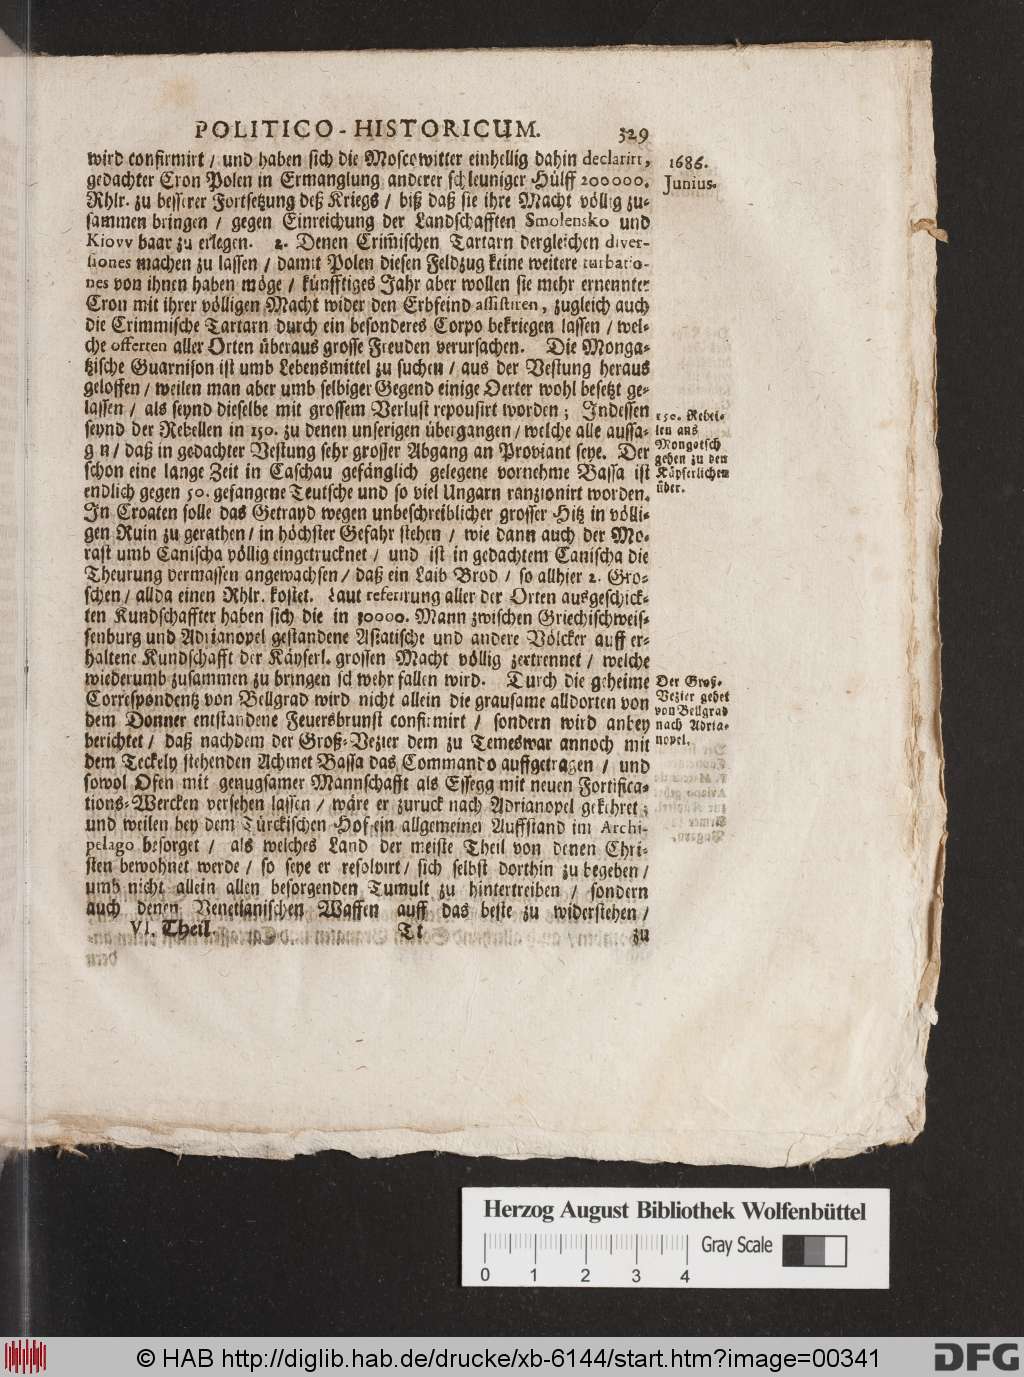 POLITICO-HISTORICUM. 329
wird confirmirt / und haben sich die Moscowitter einhellig dahin declarirt,
gedachter Cron Polen in Ermanglung anderer schleuniger Hülff 200000.
Rhlr. zu besserer Fortsetzung deß Kriegs / biß daß sie ihre Macht völlig zu-
sammen bringen / gegen Einreichung der Landschafften Smolensko und
Kiovv baar zu erlegen. 2. Denen Crim̃ischen Tartarn dergleichen diver-
siones machen zu lassen / damit Polen diesen Feldzug keine weitere turbatio-
nes von ihnen haben möge / künfftiges Jahr aber wollen sie mehr ernennter
Cron mit ihrer völligen Macht wider den Erbfeind assistiren, zugleich auch
die Crimmische Tartarn durch ein besonderes Corpo bekriegen lassen / wel-
che offerten aller Orten überaus grosse Freuden verursachen. Die Monga-
tzische Guarnison ist umb Lebensmittel zu suchen / aus der Vestung heraus
geloffen / weilen man aber umb selbiger Gegend einige Oerter wohl besetzt ge-
lassen / als seynd dieselbe mit grossem Verlust repousirt worden; Indessen
seynd der Rebellen in 150. zu denen unserigen übergangen / welche alle aussa-
g n / daß in gedachter Vestung sehr grosser Abgang an Proviant seye. Der
schon eine lange Zeit in Caschau gefänglich gelegene vornehme Bassa ist
endlich gegen 50. gefangene Teutsche und so viel Ungarn ranzionirt worden.
In Croaten solle das Getrayd wegen unbeschreiblicher grosser Hitz in völli-
gen Ruin zu gerathen / in höchster Gefahr stehen / wie dann auch der Mo-
rast umb Canischa völlig eingetrucknet / und ist in gedachtem Canischa die
Theurung dermassen angewachsen / daß ein Laib Brod / so allhier 2. Gro-
schen / allda einen Rhlr. kostet. Laut referirung aller der Orten ausgeschick-
ten Kundschaffter haben sich die in 30000. Mann zwischen Griechischweis-
senburg und Adrianopel gestandene Asiatische und andere Völcker auff er-
haltene Kundschafft der Käyserl. grossen Macht völlig zertrennet / welche
wiederumb zusammen zu bringen schwehr fallen wird. Durch die geheime
Correspondentz von Bellgrad wird nicht allein die grausame alldorten von
dem Donner entstandene Feuersbrunst confirmirt / sondern wird anbey
berichtet / daß nachdem der Groß-Vezier dem zu Temeswar annoch mit
dem Teckely stehenden Achmet Bassa das Commando auffgetragen / und
sowol Ofen mit genugsamer Mannschafft als Essegg mit neuen Fortifica-
tions-Wercken versehen lassen / wäre er zuruck nach Adrianopel gekehret;
und weilen bey dem Türckischen Hof ein allgemeiner Auffstand im Archi-
pelago besorget / als welches Land der meiste Theil von denen Chri-
sten bewohnet werde / so seye er resolvirt / sich selbst dorthin zu begeben /
umb nicht allein allen besorgenden Tumult zu hintertreiben / sondern
auch denen Venetianischen Waffen auff das beste zu widerstehen /
VI. Theil. Tt zu
1686.
Junius.
150. Rebel-
len aus
Mongotsch
gehen zu den
Käyserlichen
über.
Der Groß-
Vezier gehet
von Bellgrad
nach Adria-
nopel.
Herzog August Bibliothek Wolfenbüttel
0 1 2 3 4
Gray Scale
© HAB http://diglib.hab.de/drucke/xb-6144/start.htm?image=00341
DFG